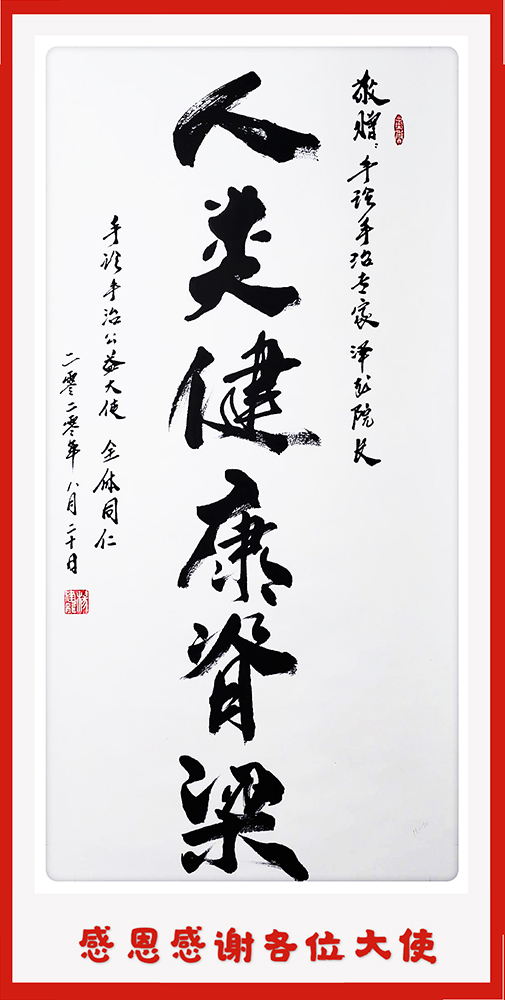 敬赠：手诊手治专家 泽 院长
人类健康脊梁
手诊手治公益大使 全体同仁
二零二零年 八月二十日
感恩感谢各位大使